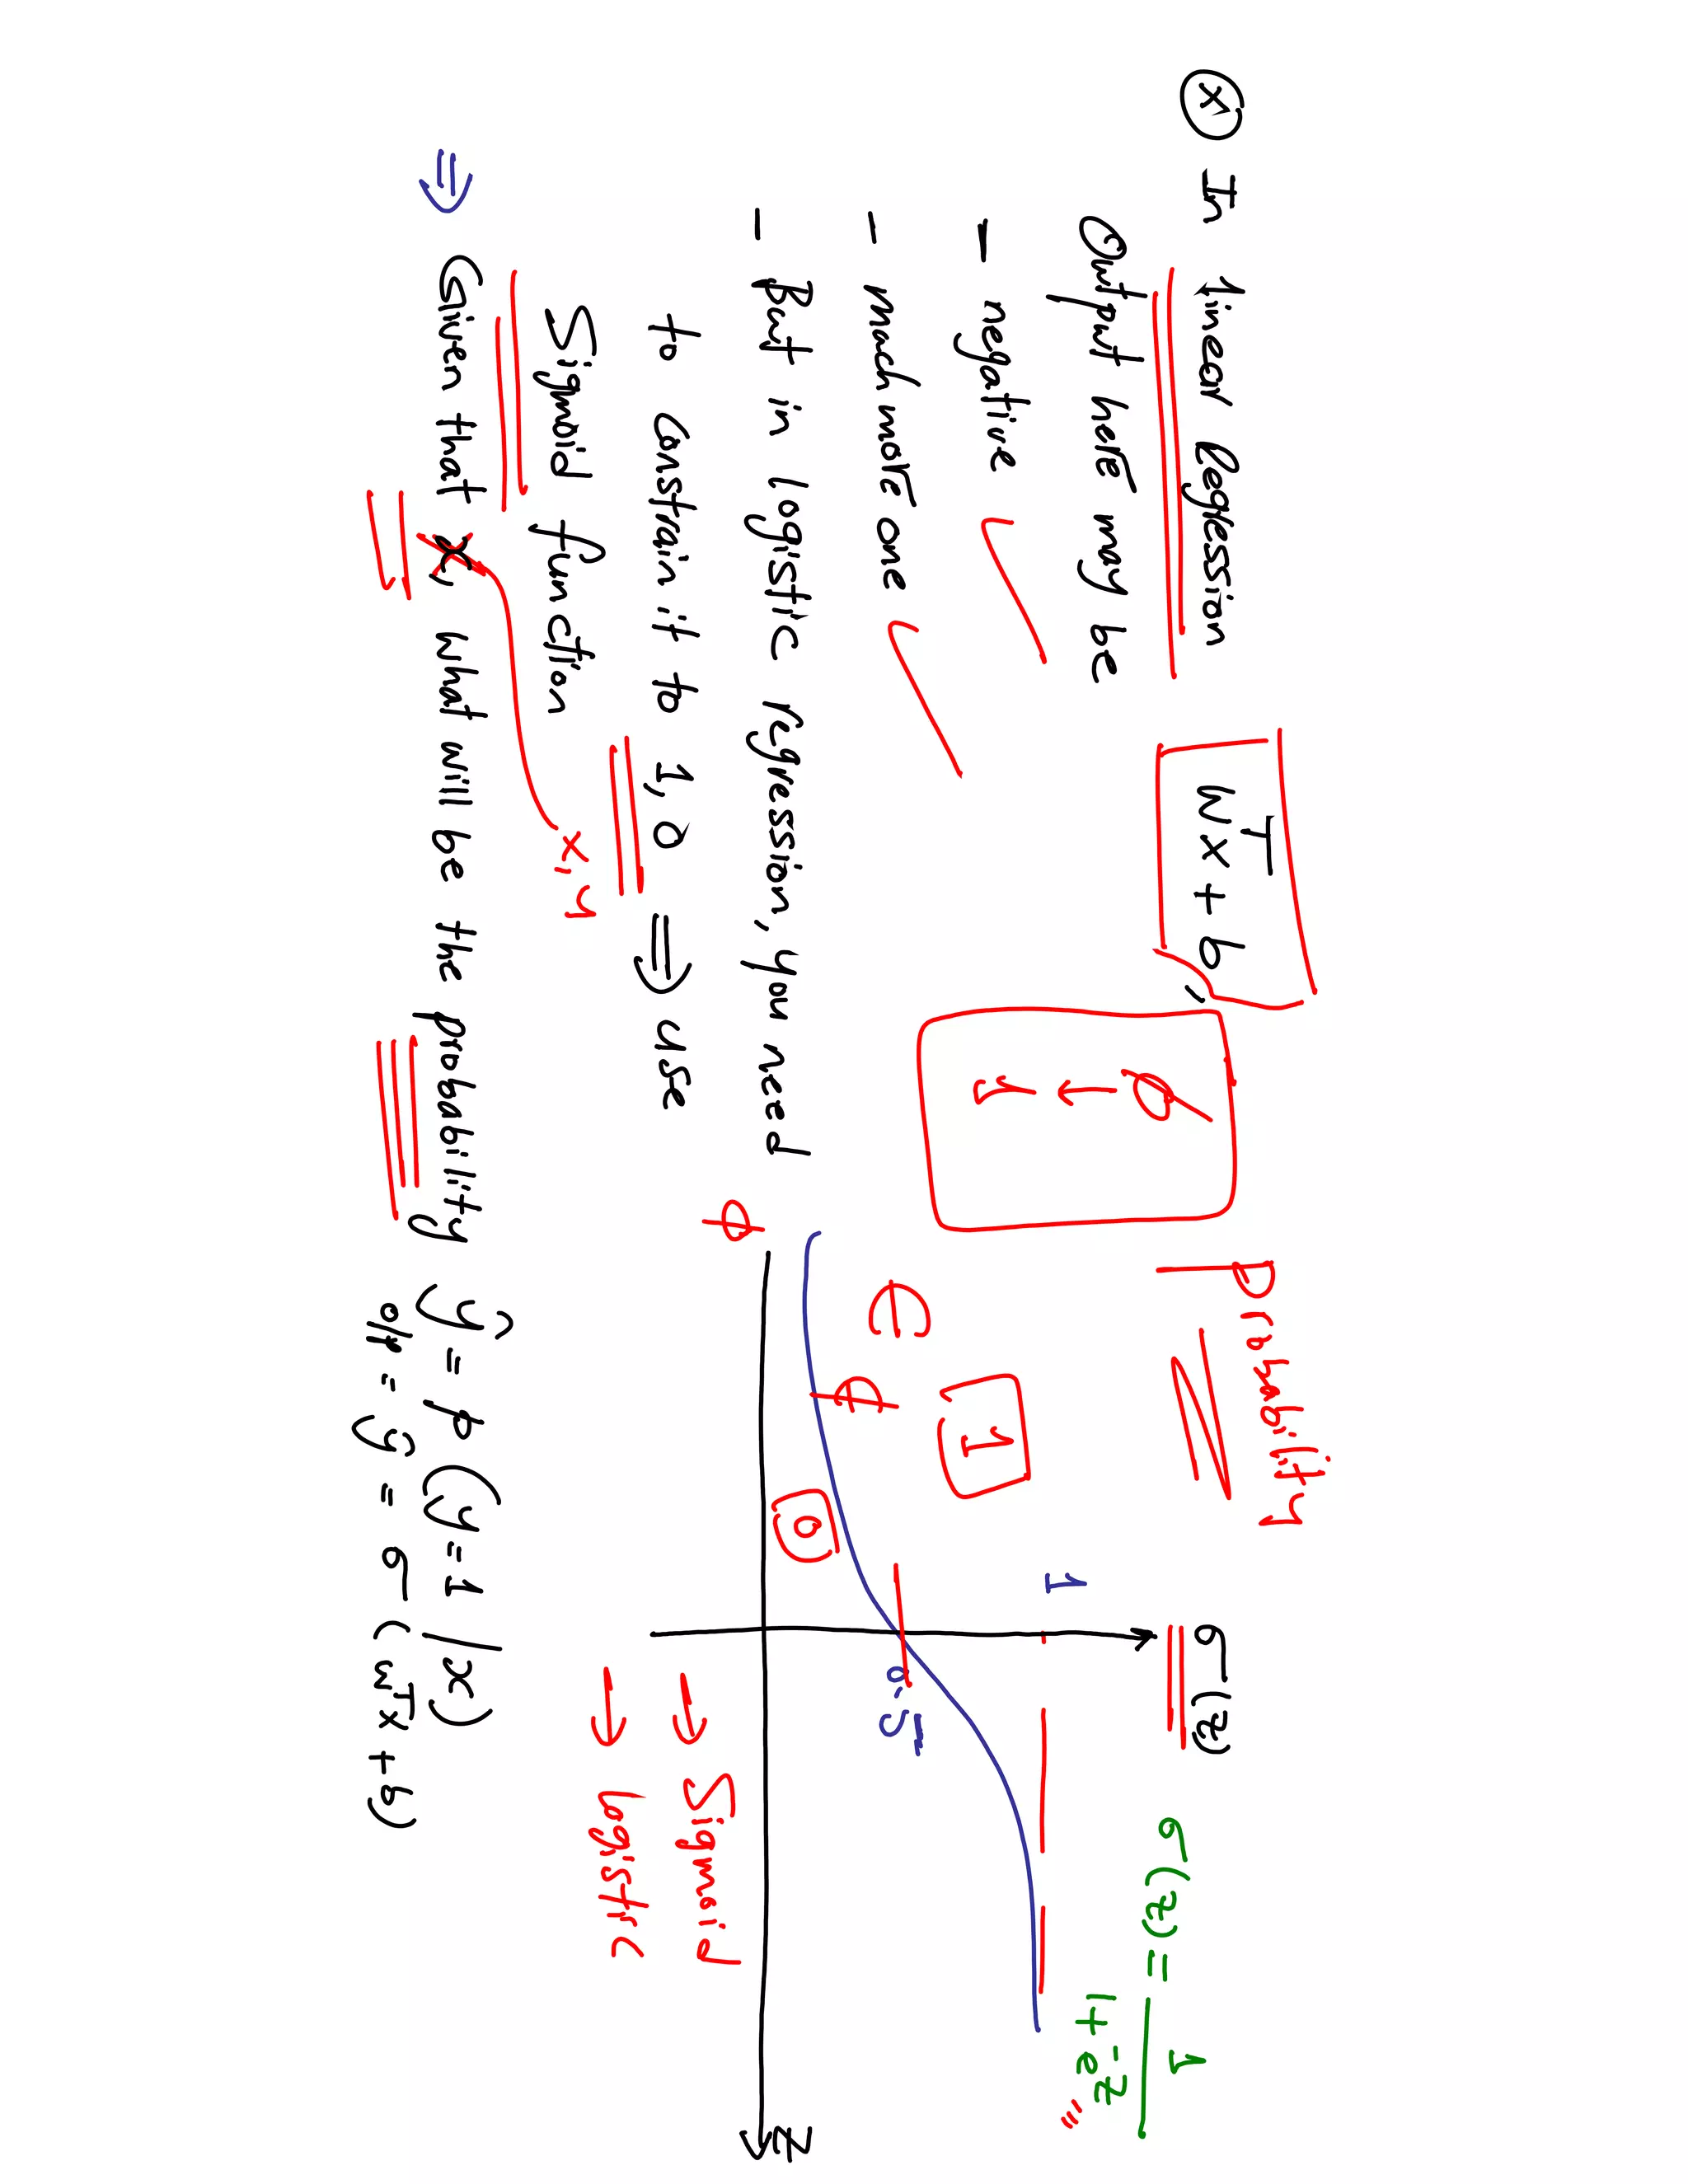 ⓧ In linear Regression
Output here may be
- negative
- much more one
- But in logistic regression, you need
to constrain it to 1, 0 ⇒ use
Sigmoid function
⇒ Given that x, what will be the probability ŷ = p (y=1 / x)
o/p = ŷ = σ (wᵀx + b)
x, y
wᵀx + b,
0 → 1
Probability
1
0
0
σ(z)
1
0.5
z
σ(z) = 1
1 + e⁻ᶻ
→ Sigmoid
→ logistic